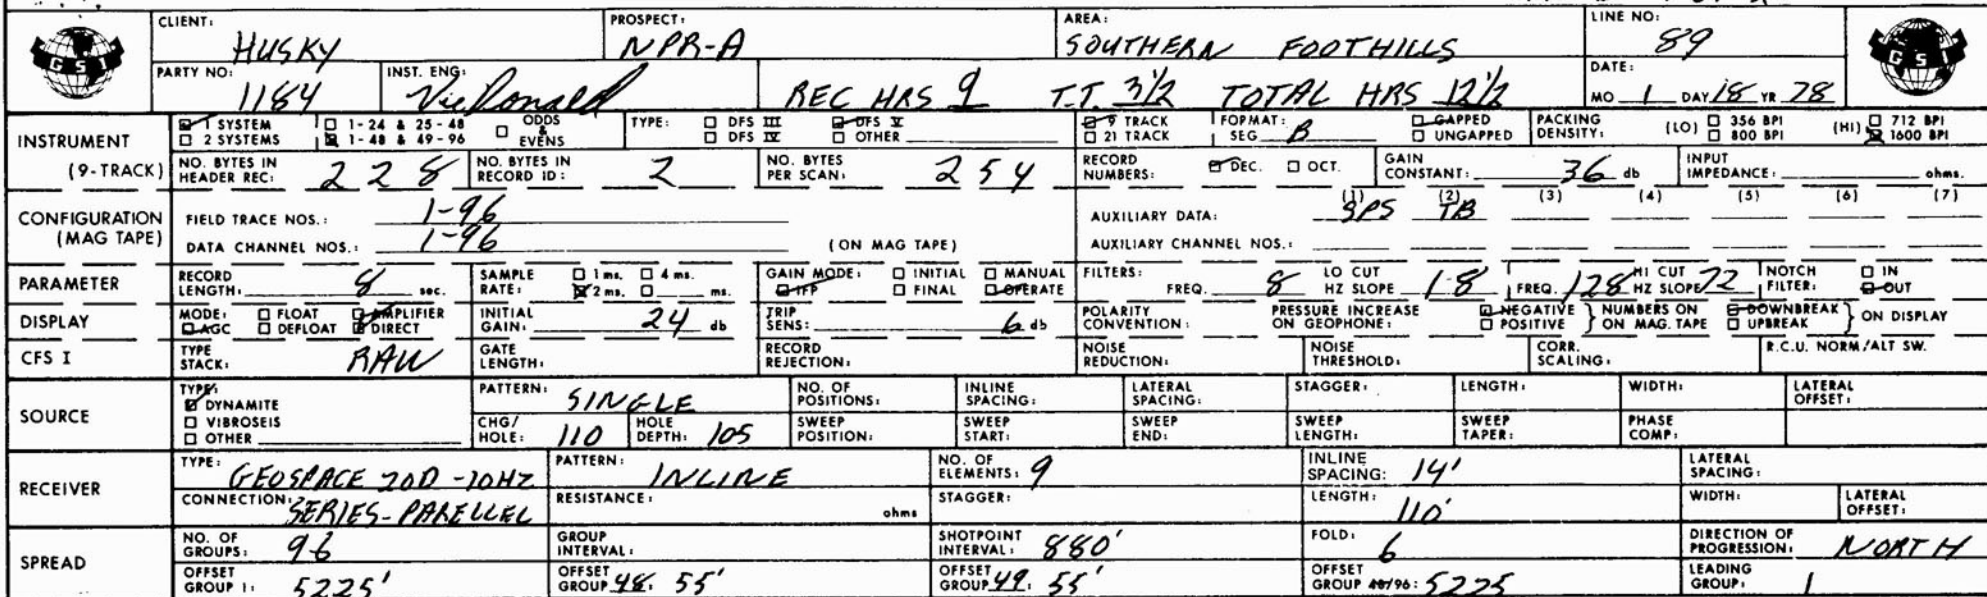 CLIENT: HUSKY PROSPECT: NPR-A AREA: SOUTHERN FOOTHILLS LINE NO: 89
GSI GSI
PARTY NO: 1184 INST. ENG: Vic Donald REC HRS 9 T.T. 3½ TOTAL HRS 12½ DATE: MO 1 DAY 18 YR 78
INSTRUMENT (9-TRACK) 1 SYSTEM 1-24 & 25-48 ODDS & EVENS TYPE: DFS III DFS V 9 TRACK FORMAT: SEG B GAPPED PACKING DENSITY: (LO) 356 BPI (HI) 712 BPI
2 SYSTEMS 1-48 & 49-96 DFS IV OTHER 21 TRACK UNGAPPED 800 BPI 1600 BPI
NO. BYTES IN HEADER REC: 228 NO. BYTES IN RECORD ID: 2 NO. BYTES PER SCAN: 254 RECORD NUMBERS: DEC. OCT. GAIN CONSTANT: 36 db INPUT IMPEDANCE: ohms.
CONFIGURATION (MAG TAPE) FIELD TRACE NOS.: 1-96 AUXILIARY DATA: (1) SPS (2) TB (3) (4) (5) (6) (7)
DATA CHANNEL NOS.: 1-96 (ON MAG TAPE) AUXILIARY CHANNEL NOS.:
PARAMETER RECORD LENGTH: 8 sec. SAMPLE RATE: 1 ms. 4 ms. 2 ms. ms. GAIN MODE: INITIAL MANUAL IFP FINAL OPERATE FILTERS: FREQ. 8 LO CUT HZ SLOPE 18 FREQ. 128 HI CUT HZ SLOPE 72 NOTCH FILTER: IN OUT
DISPLAY MODE: FLOAT AMPLIFIER AGC DEFLOAT DIRECT INITIAL GAIN: 24 db TRIP SENS: 6 db POLARITY CONVENTION: PRESSURE INCREASE ON GEOPHONE: NEGATIVE POSITIVE NUMBERS ON ON MAG. TAPE DOWNBREAK UPBREAK ON DISPLAY
CFS I TYPE STACK: RAW GATE LENGTH: RECORD REJECTION: NOISE REDUCTION: NOISE THRESHOLD: CORR. SCALING: R.C.U. NORM/ALT SW.
SOURCE TYPE: DYNAMITE VIBROSEIS OTHER PATTERN: SINGLE NO. OF POSITIONS: INLINE SPACING: LATERAL SPACING: STAGGER: LENGTH: WIDTH: LATERAL OFFSET:
CHG/HOLE: 110 HOLE DEPTH: 105 SWEEP POSITION: SWEEP START: SWEEP END: SWEEP LENGTH: SWEEP TAPER: PHASE COMP:
RECEIVER TYPE: GEOSPACE 20D-10HZ PATTERN: INLINE NO. OF ELEMENTS: 9 INLINE SPACING: 14' LATERAL SPACING:
CONNECTION: SERIES-PARELLEL RESISTANCE: ohms STAGGER: LENGTH: 110' WIDTH: LATERAL OFFSET:
SPREAD NO. OF GROUPS: 96 GROUP INTERVAL: SHOTPOINT INTERVAL: 880' FOLD: 6 DIRECTION OF PROGRESSION: NORTH
OFFSET GROUP 1: 5225' OFFSET GROUP 48: 55' OFFSET GROUP 49: 55' OFFSET GROUP 48/96: 5225 LEADING GROUP: 1